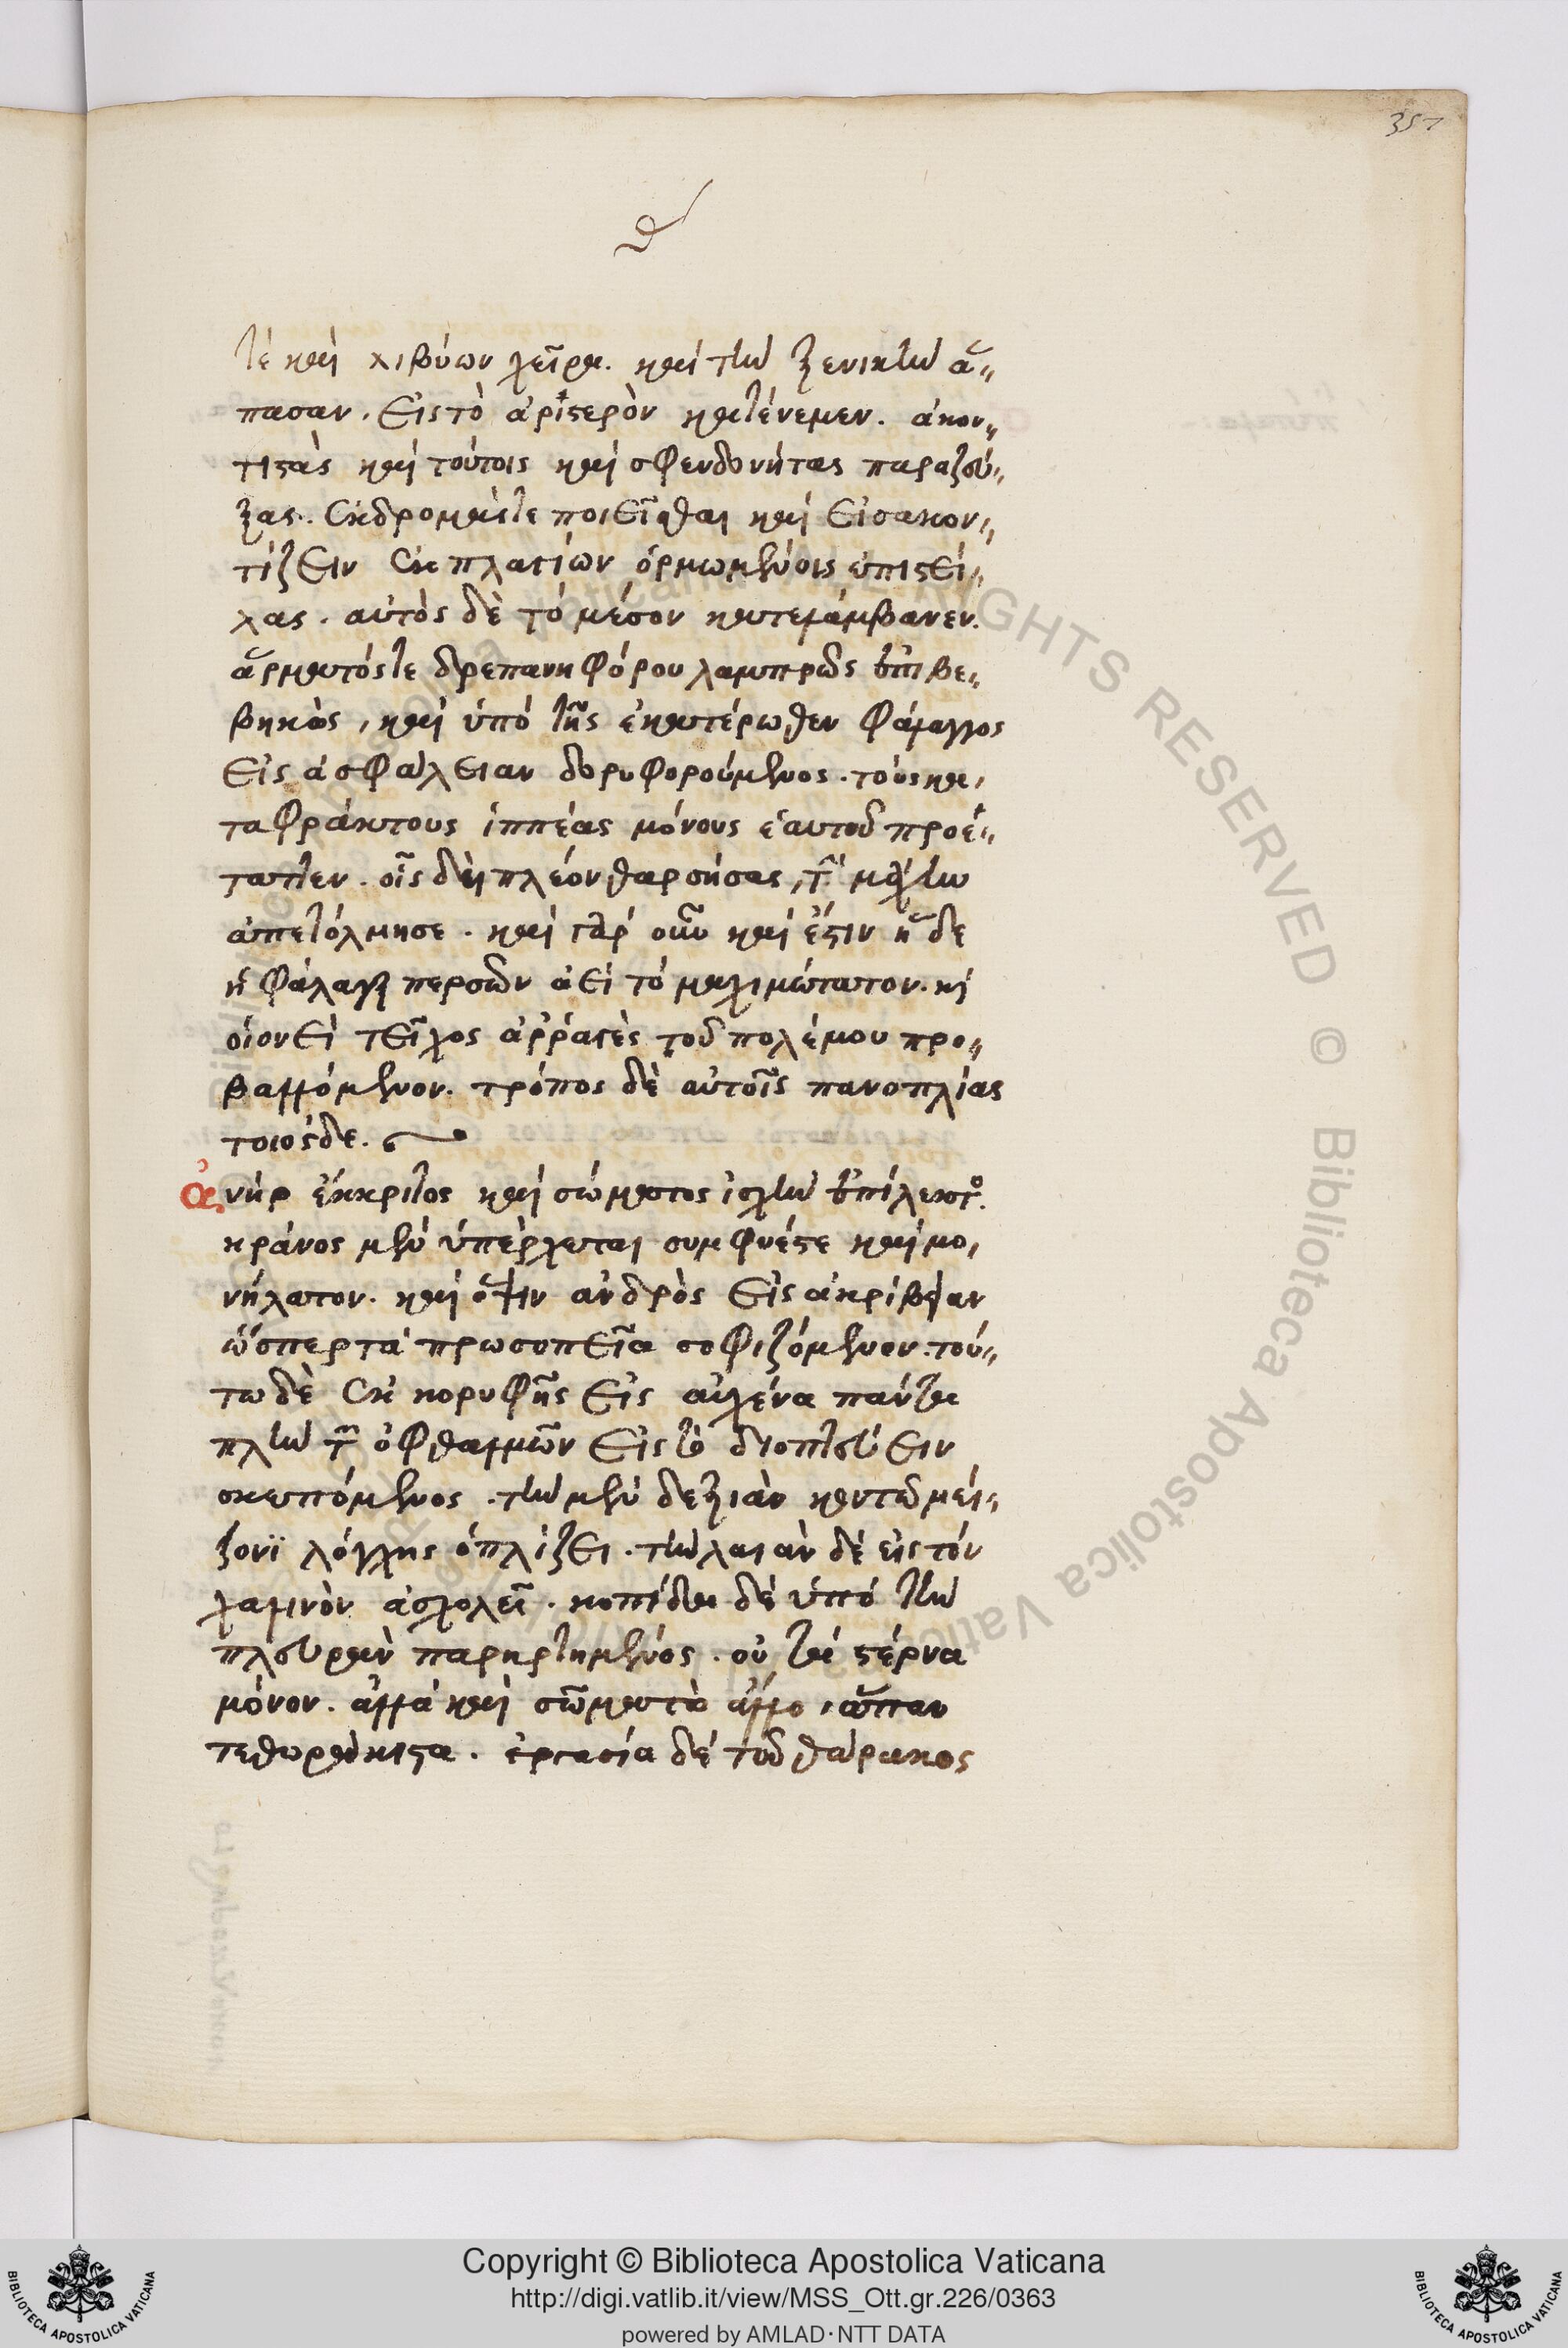 357
θ
τέ καὶ λιβύων χεῖρα. καὶ τὴν ξενικὴν ἅ„
πασαν. εἰς τὸ ἀριστερὸν κατένεμεν. ἀκον„
τιστὰς καὶ τούτοις καὶ σφενδονήτας παραζεύ„
ξας. ἐκδρομάς τε ποιεῖσθαι καὶ εἰσακον„
τίζειν ἐκ πλαγίων ὁρμωμένοις ἐπιστεί„
λας. αὐτὸς δὲ τὸ μέσον κατελάμβανεν.
ἅρματός τε δρεπανηφόρου λαμπρῶς ἐπιβε„
βηκὼς, καὶ ὑπὸ τῆς ἑκατέρωθεν φάλαγγος
εἰς ἀσφάλειαν δορυφορούμενος. τοὺς κα,
ταφράκτους ἱππέας μόνους ἑαυτοῦ προέ„
ταττεν. οἷς δὴ πλέον θαρσήσας, τὴν μάχην
ἀπετόλμησε. καὶ γὰρ οὖν καὶ ἔστιν ἥδε
ἡ φάλαγξ περσῶν ἀεὶ τὸ μαχιμώτατον. καὶ
οἱονεὶ τεῖχος ἀρραγὲς τοῦ πολέμου προ„
βαλλόμενον. τρόπος δὲ αὐτοῖς πανοπλίας
τοιόσδε.
ἀνὴρ ἔκκριτος καὶ σώματος ἰσχὺν ἐπίλεκτος.
κράνος μὲν ὑπέρχεται συμφυές τε καὶ μο,
νήλατον. καὶ ὄψιν ἀνδρὸς εἰς ἀκρίβειαν
ὥσπερ τὰ πρωσοπεῖα σοφιζόμενον. τού„
τω δὲ ἐκ κορυφῆς εἰς αὐχένα πάντα
πλὴν τῶν ὀφθαλμῶν εἰς τὸ διοπτεύειν
σκεπόμενος. τὴν μὲν δεξιὰν κοντῷ μεί„
ζονϊ λόγχης ὁπλίζει. τὴν λαιὰν δὲ εἰς τὸν
χαλινὸν ἀσχολεῖ. κοπίδα δὲ ὑπὸ τὴν
πλευρὰν παρηρτημένος. οὐ τὰ στέρνα
μόνον. ἀλλὰ καὶ σῶμα τὸ ἄλλο, ἅπαν
τεθωράκιστα. ἐργασία δὲ τοῦ θώρακος
Copyright © Biblioteca Apostolica Vaticana
http://digi.vatlib.it/view/MSS_Ott.gr.226/0363
powered by AMLAD·NTT DATA